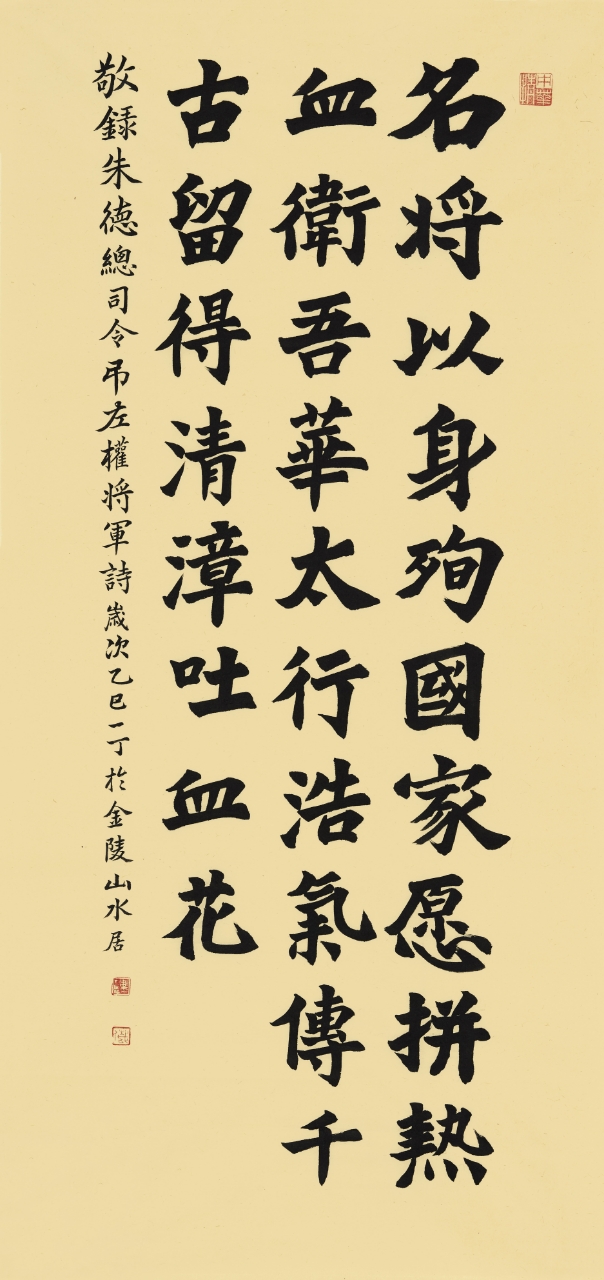 名将以身殉國家愿拼熱
血衛吾華太行浩氣傳千
古留得清漳吐血花
敬錄朱德總司令吊左權將軍詩歲次乙巳一丁於金陵山水居